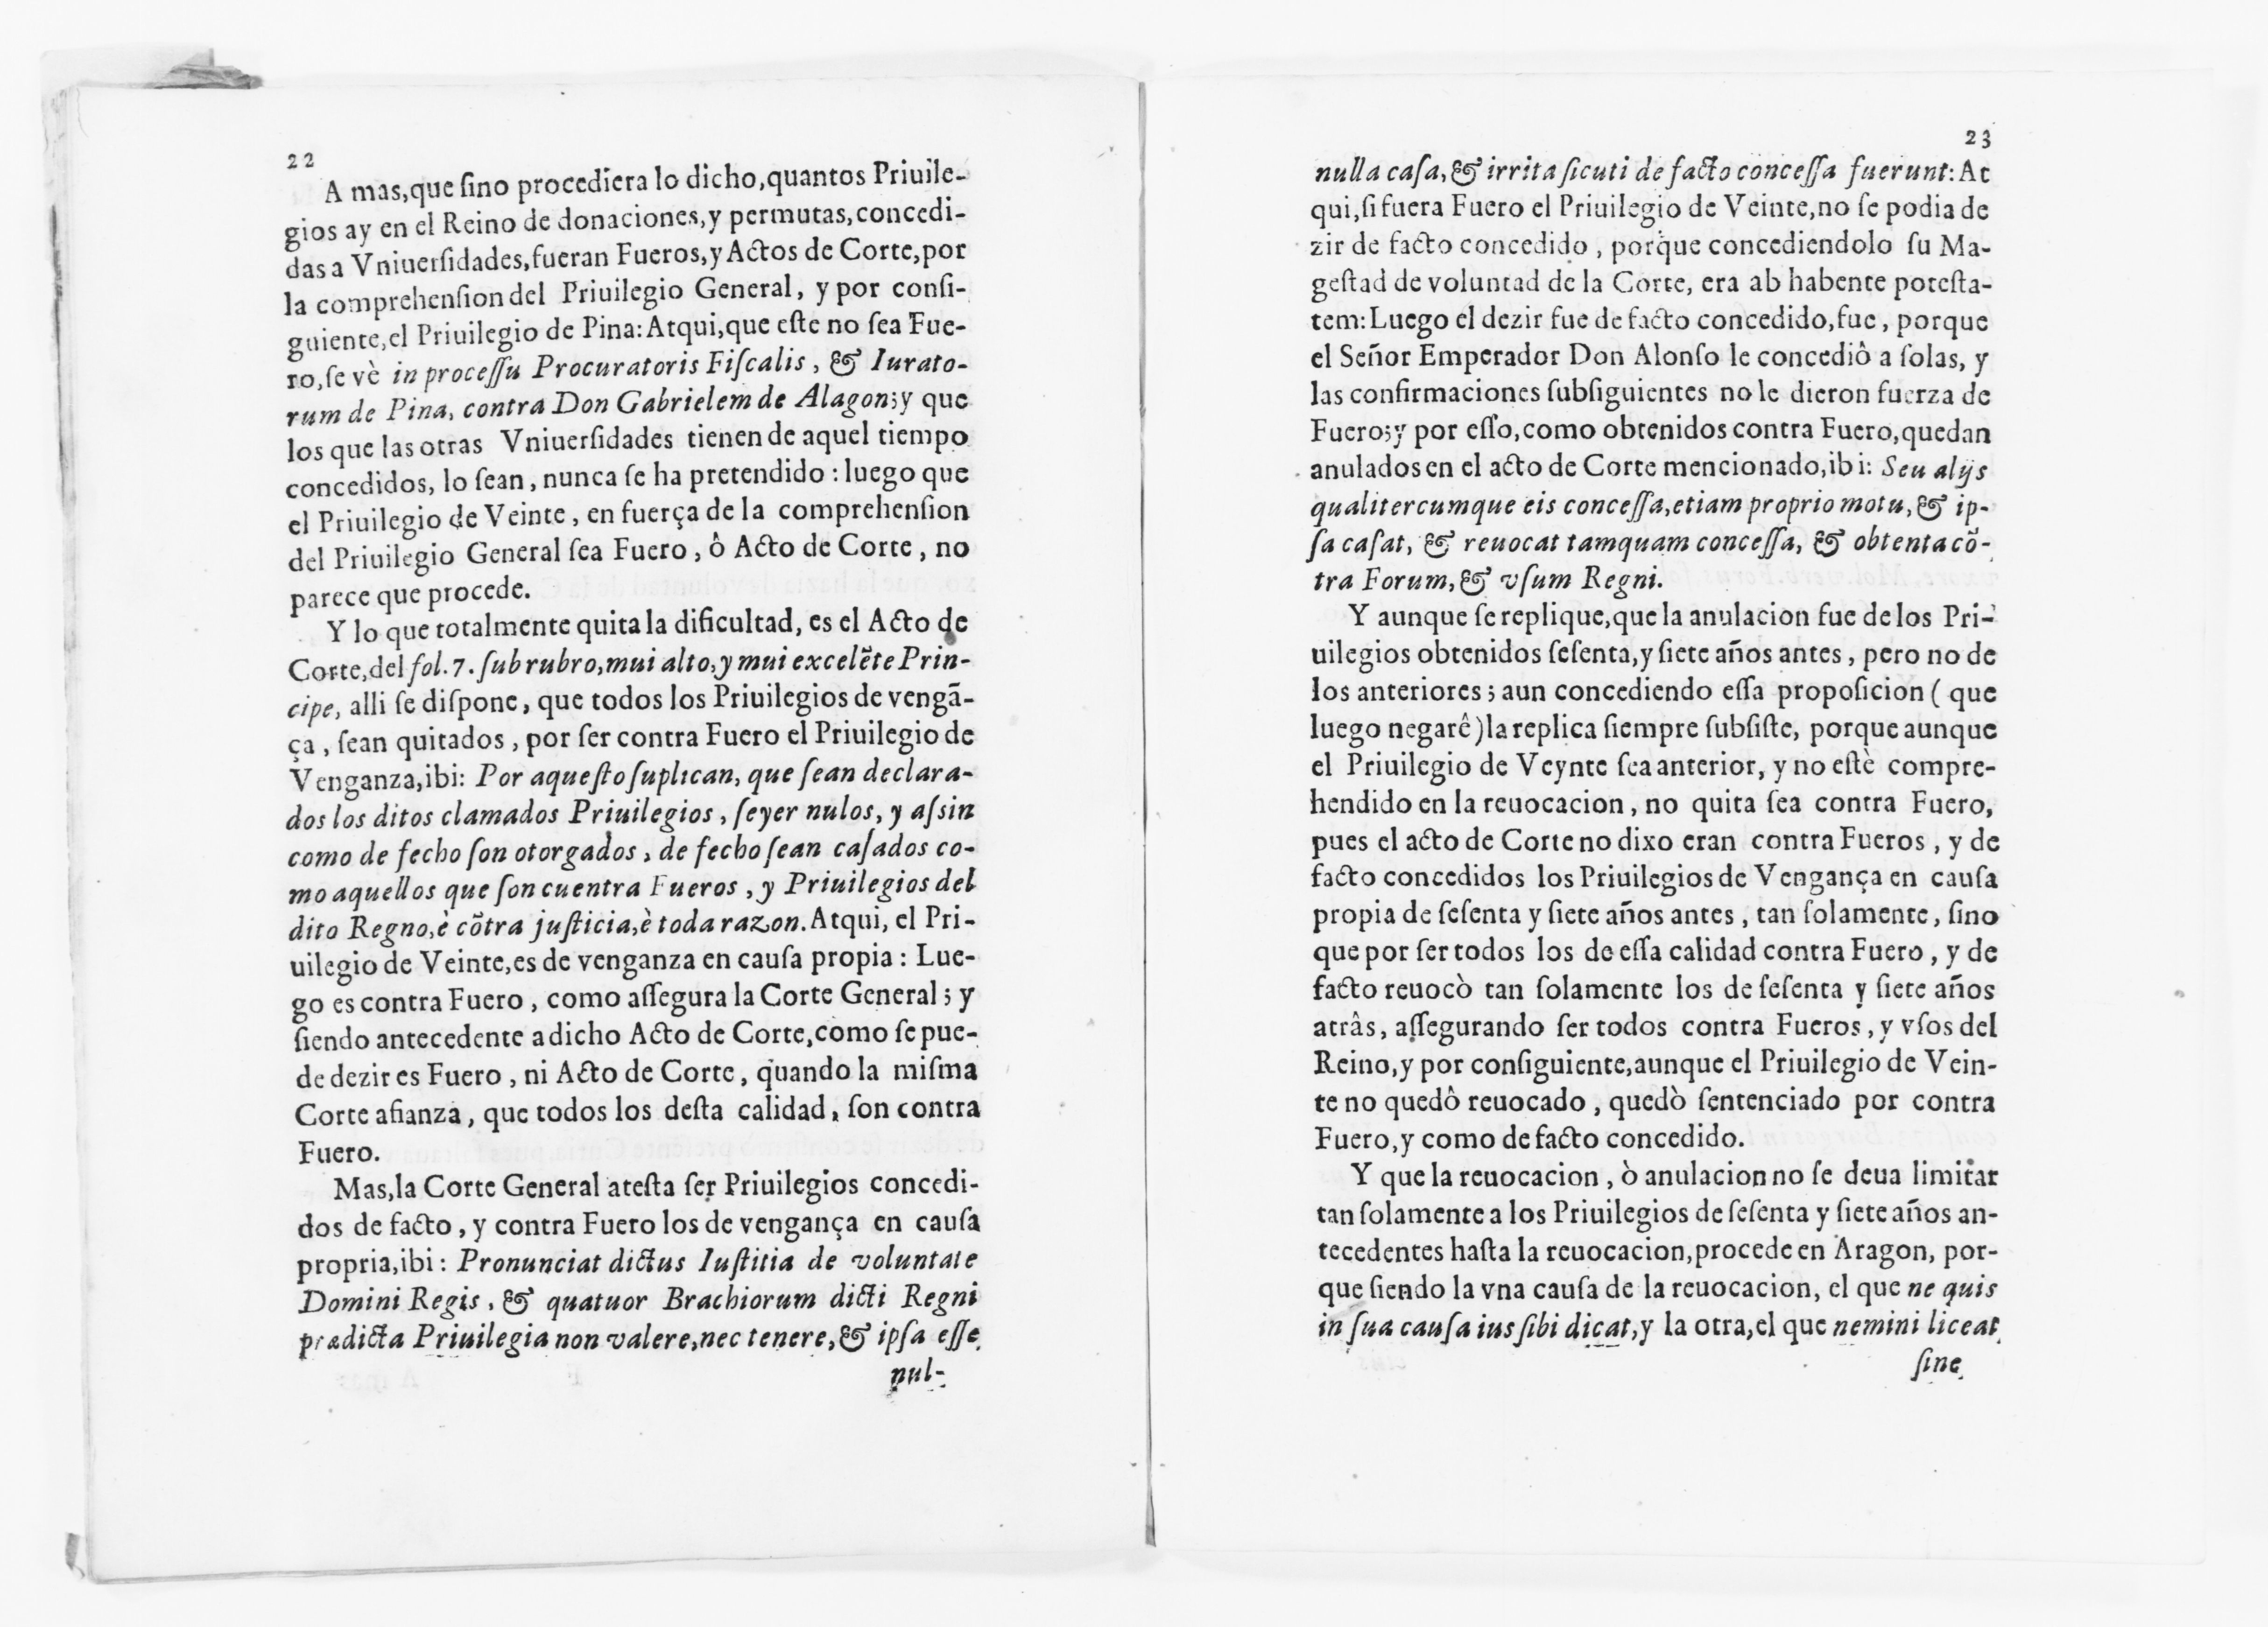 22
A mas,que ſino procediera lo dicho,quantos Priuile-
gios ay en el Reino de donaciones,y permutas,concedi-
das a Vniuerſidades,fueran Fueros,y Actos de Corte,por
la comprehenſion del Priuilegio General, y por conſi-
guiente,el Priuilegio de Pina: Atqui,que eſte no ſea Fue-
ro,ſe vè in proceſſu Procuratoris Fiſcalis, & Iurato-
rum de Pina, contra Don Gabrielem de Alagon;y que
los que las otras Vniuerſidades tienen de aquel tiempo
concedidos, lo ſean, nunca ſe ha pretendido : luego que
el Priuilegio de Veinte, en fuerça de la comprehenſion
del Priuilegio General ſea Fuero, ô Acto de Corte, no
parece que procede.
Y lo que totalmente quita la dificultad, es el Acto de
Corte,del fol.7. ſub rubro,mui alto,y mui excelẽte Prin-
cipe, alli ſe diſpone, que todos los Priuilegios de vengã-
ça, ſean quitados, por ſer contra Fuero el Priuilegio de
Venganza,ibi: Por aqueſto ſuplican, que ſean declara-
dos los ditos clamados Priuilegios, ſeyer nulos, y aſsin
como de fecho ſon otorgados, de fecho ſean caſados co-
mo aquellos que ſon cuentra Fueros, y Priuilegios del
dito Regno,è cõtra juſticia,è toda razon. Atqui, el Pri-
uilegio de Veinte,es de venganza en cauſa propia : Lue-
go es contra Fuero, como aſſegura la Corte General; y
ſiendo antecedente a dicho Acto de Corte,como ſe pue-
de dezir es Fuero, ni Acto de Corte, quando la miſma
Corte afianza, que todos los deſta calidad, ſon contra
Fuero.
Mas,la Corte General ateſta ſer Priuilegios concedi-
dos de facto, y contra Fuero los de vengança en cauſa
propria,ibi: Pronunciat dictus Iuſtitia de voluntate
Domini Regis, & quatuor Brachiorum dicti Regni
prædicta Priuilegia non valere,nec tenere,& ipſa eſſe
nul-
23
nulla caſa,& irrita ſicuti de facto conceſſa fuerunt: At
qui,ſi fuera Fuero el Priuilegio de Veinte,no ſe podia de
zir de facto concedido, porque concediendolo ſu Ma-
geſtad de voluntad de la Corte, era ab habente poteſta-
tem: Luego el dezir fue de facto concedido,fue, porque
el Señor Emperador Don Alonſo le concediô a ſolas, y
las confirmaciones ſubſiguientes no le dieron fuerza de
Fuero;y por eſſo,como obtenidos contra Fuero,quedan
anulados en el acto de Corte mencionado,ibi: Seu alijs
qualitercumque eis conceſſa,etiam proprio motu,& ip-
ſa caſat, & reuocat tamquam conceſſa, & obtenta cõ-
tra Forum,& vſum Regni.
Y aunque ſe replique,que la anulacion fue de los Pri-
uilegios obtenidos ſeſenta,y ſiete años antes, pero no de
los anteriores; aun concediendo eſſa propoſicion ( que
luego negarê)la replica ſiempre ſubſiſte, porque aunque
el Priuilegio de Veynte ſea anterior, y no eſtè compre-
hendido en la reuocacion, no quita ſea contra Fuero,
pues el acto de Corte no dixo eran contra Fueros, y de
facto concedidos los Priuilegios de Vengança en cauſa
propia de ſeſenta y ſiete años antes, tan ſolamente, ſino
que por ſer todos los de eſſa calidad contra Fuero, y de
facto reuocò tan ſolamente los de ſeſenta y ſiete años
atrâs, aſſegurando ſer todos contra Fueros, y vſos del
Reino,y por conſiguiente,aunque el Priuilegio de Vein-
te no quedô reuocado, quedò ſentenciado por contra
Fuero,y como de facto concedido.
Y que la reuocacion, ò anulacion no ſe deua limitar
tan ſolamente a los Priuilegios de ſeſenta y ſiete años an-
tecedentes haſta la reuocacion,procede en Aragon, por-
que ſiendo la vna cauſa de la reuocacion, el que ne quis
in ſua cauſa ius ſibi dicat,y la otra,el que nemini liceat
ſine